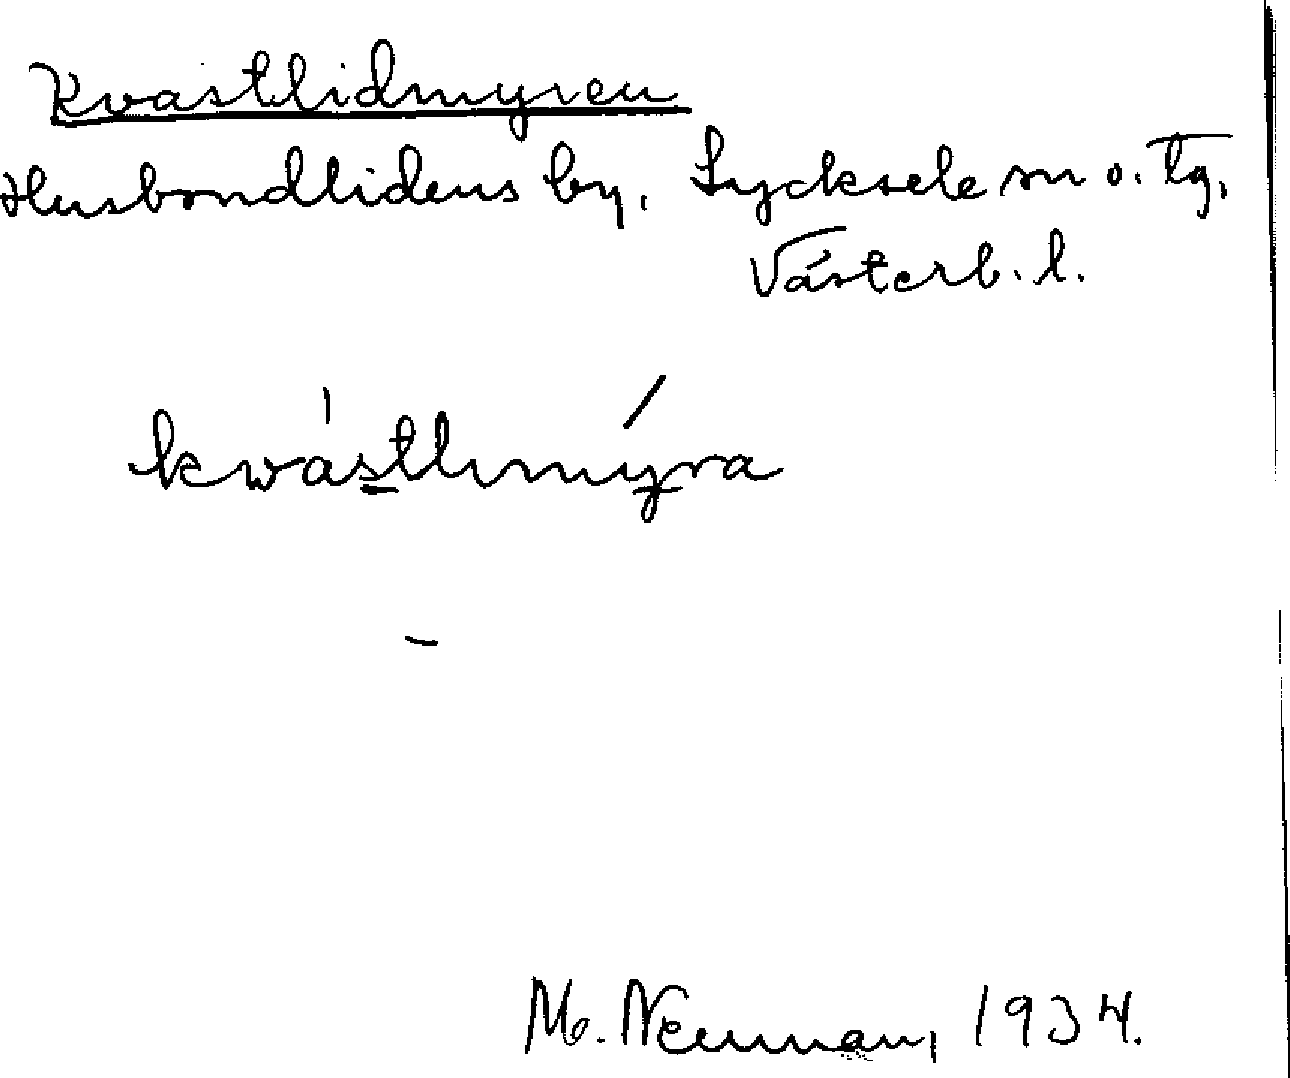 Kvastlidmyren
Husbondlidens by. Lycksele sn o. tg.
Västerb. l.
kwástlımýra
M. Neuman, 1934.